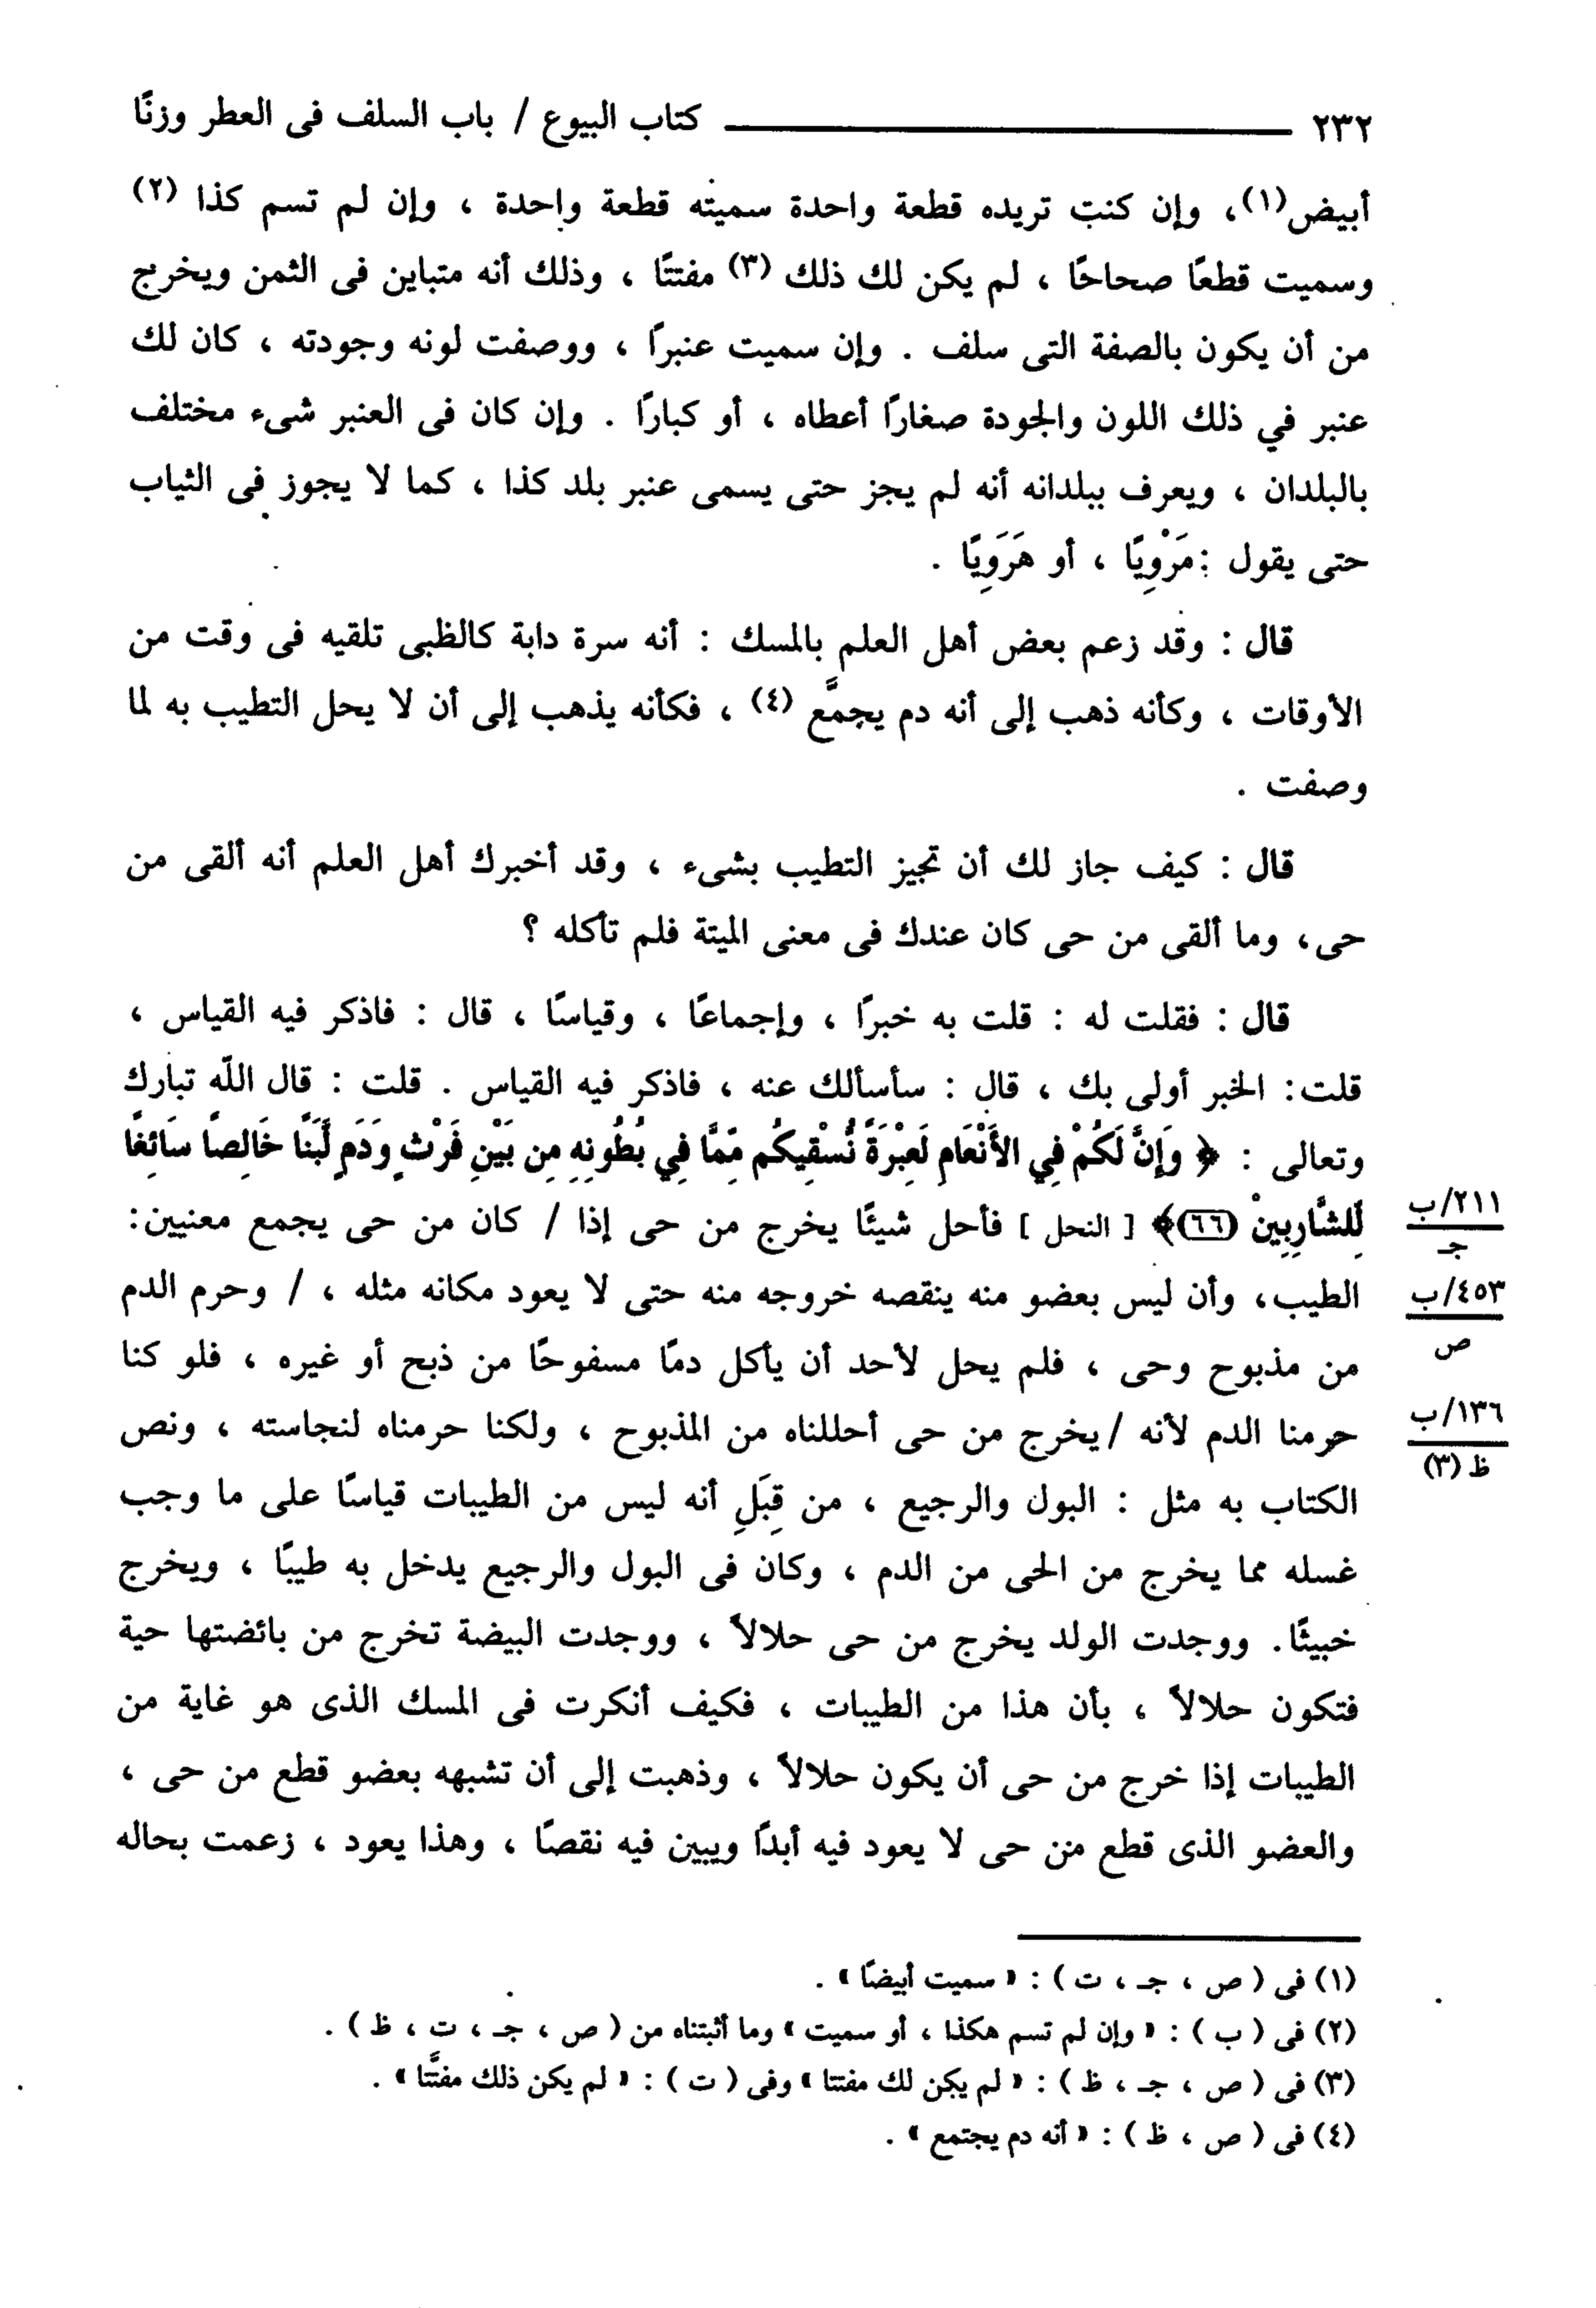 ٢٣٢ كتاب البيوع / باب السلف فى العطر وزنًا
أبيض(١)، وإن كنت تريده قطعة واحدة سميته قطعة واحدة ، وإن لم تسم كذا (٢)
وسميت قطعًا صحاحًا ، لم يكن لك ذلك (٣) مفتتًا ، وذلك أنه متباين فى الثمن ويخرج
من أن يكون بالصفة التى سلف . وإن سميت عنبرًا ، ووصفت لونه وجودته ، كان لك
عنبر في ذلك اللون والجودة صغارًا أعطاه ، أو كبارًا . وإن كان فى العنبر شىء مختلف
بالبلدان ، ويعرف ببلدانه أنه لم يجز حتى يسمى عنبر بلد كذا ، كما لا يجوز فى الثياب
حتى يقول : مَرْوِيًا ، أو هَرَوِيًا .
قال : وقد زعم بعض أهل العلم بالمسك : أنه سرة دابة كالظبى تلقيه فى وقت من
الأوقات ، وكأنه ذهب إلى أنه دم يجمَّع (٤) ، فكأنه يذهب إلى أن لا يحل التطيب به لما
وصفت .
قال : كيف جاز لك أن تجيز التطيب بشىء ، وقد أخبرك أهل العلم أنه ألقى من
حى، وما ألقى من حى كان عندك فى معنى الميتة فلم تأكله ؟
قال : فقلت له : قلت به خبرًا ، وإجماعًا ، وقياسًا ، قال : فاذكر فيه القياس ،
قلت: الخبر أولى بك ، قال : سأسألك عنه ، فاذكر فيه القياس . قلت : قال الله تبارك
وتعالى : ﴿ وَإِنَّ لَكُمْ فِي الأَنْعَامِ لَعِبْرَةً نُّسْقِيكُم مِّمَّا فِي بُطُونِهِ مِن بَيْنِ فَرْثٍ وَدَمٍ لَّبَنًا خَالِصًا سَائِغًا
لِّلشَّارِبِينَ (٦٦)﴾ [ النحل ] فأحل شيئًا يخرج من حى إذا / كان من حى يجمع معنيين:
٢١١/ب
جـ
الطيب، وأن ليس بعضو منه ينقصه خروجه منه حتى لا يعود مكانه مثله ، / وحرم الدم
٤٥٣/ب
ص
من مذبوح وحى ، فلم يحل لأحد أن يأكل دمًا مسفوحًا من ذبح أو غيره ، فلو كنا
حرمنا الدم لأنه /يخرج من حى أحللناه من المذبوح ، ولكنا حرمناه لنجاسته ، ونص
١٣٦/ب
ظ (٣)
الكتاب به مثل : البول والرجيع ، من قِبَلِ أنه ليس من الطيبات قياسًا على ما وجب
غسله مما يخرج من الحى من الدم ، وكان فى البول والرجيع يدخل به طيبًا ، ويخرج
خبيثًا. ووجدت الولد يخرج من حى حلالاً ، ووجدت البيضة تخرج من بائضتها حية
فتكون حلالاً ، بأن هذا من الطيبات ، فكيف أنكرت فى المسك الذى هو غاية من
الطيبات إذا خرج من حى أن يكون حلالاً ، وذهبت إلى أن تشبهه بعضو قطع من حى ،
والعضو الذى قطع من حى لا يعود فيه أبدًا ويبين فيه نقصًا ، وهذا يعود ، زعمت بحاله
(١) فى ( ص ، جـ ، ت ) : « سميت أبيضًا » .
(٢) فى ( ب ) : « وإن لم تسم هكذا ، أو سميت » وما أثبتناه من ( ص ، جـ ، ت ، ظ ) .
(٣) فى ( ص ، جـ ، ظ ) : « لم يكن لك مفتتا » وفى ( ت ) : « لم يكن ذلك مفتَّتا » .
(٤) فى ( ص ، ظ ) : « أنه دم يجتمع » .